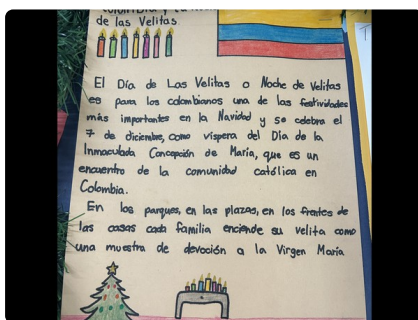 de las Velitas
El Día de Las Velitas o Noche de Velitas
es para los colombianos una de las festividades
más importantes en la Navidad y se celebra el
7 de diciembre, como víspera del Día de la
Inmaculada Concepción de María, que es un
encuentro de la comunidad católica en
Colombia.
En los parques, en las plazas, en los frentes de
las casas cada familia enciende su velita como
una muestra de devoción a la Virgen María